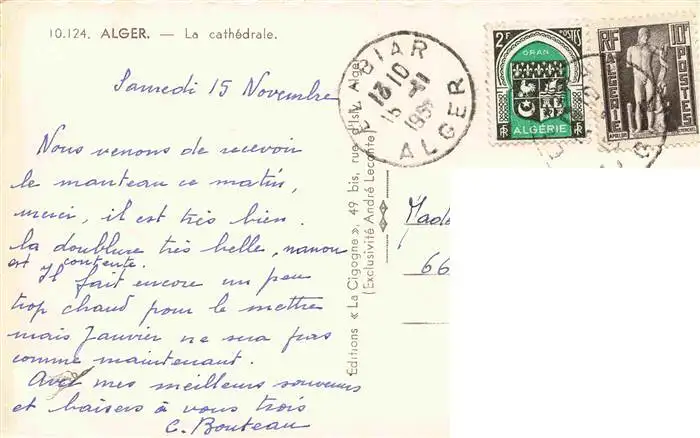 10.124. ALGER. — La cathédrale.
Samedi 15 Novembre
Nous venons de recevoir
le manteau ce matin,
merci, il est très bien.
la doublure très belle, nanou
est contente.
Il fait encore un peu
trop chaud pour le mettre
mais Janvier ne sera pas
comme maintenant.
Avec mes meilleurs souvenirs
et baisers à vous trois
C. Bouteau
Editions « La Cigogne », 49 bis, rue d'Isly, Alger
(Exclusivité André Leconte)
EL-BIAR
13 10
15 -11
ALGER
2F POSTES
ORAN
RF ALGÉRIE RF
RF 10F
ALGERIE POSTES
APOLLON
Made
66